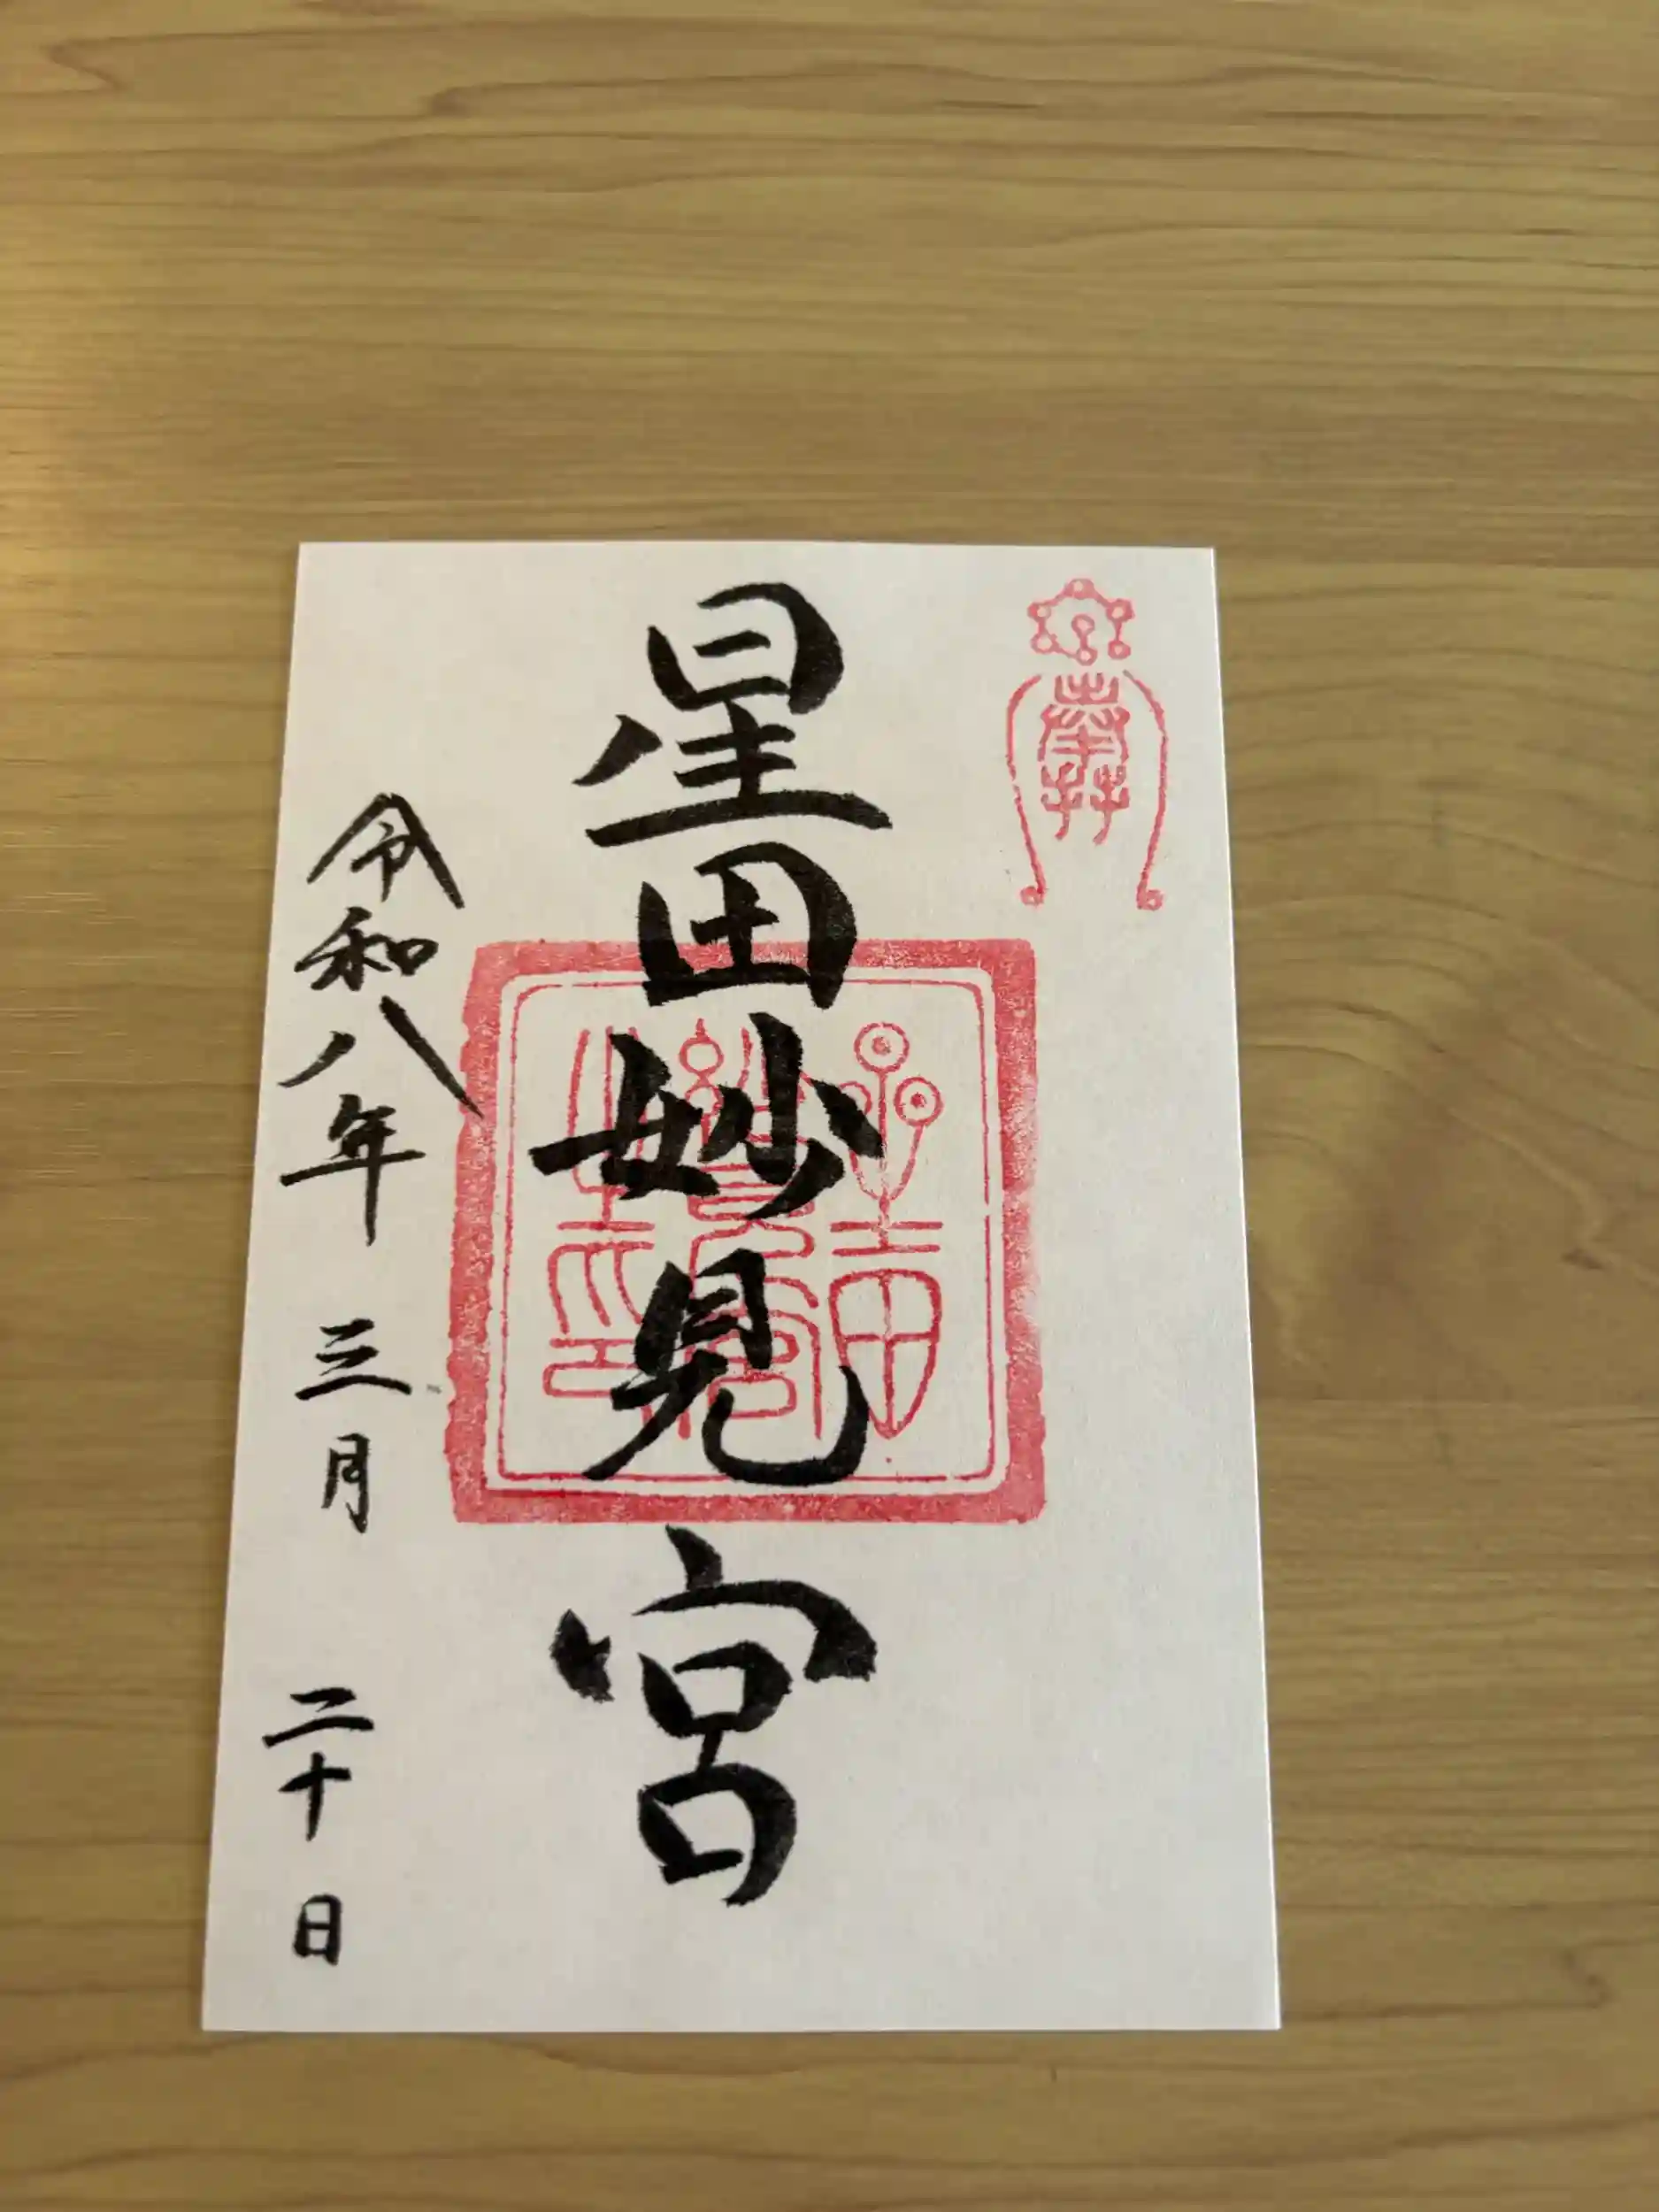 奉拝
星田妙見宮
星田妙見宮之印
令和八年 三月 二十日